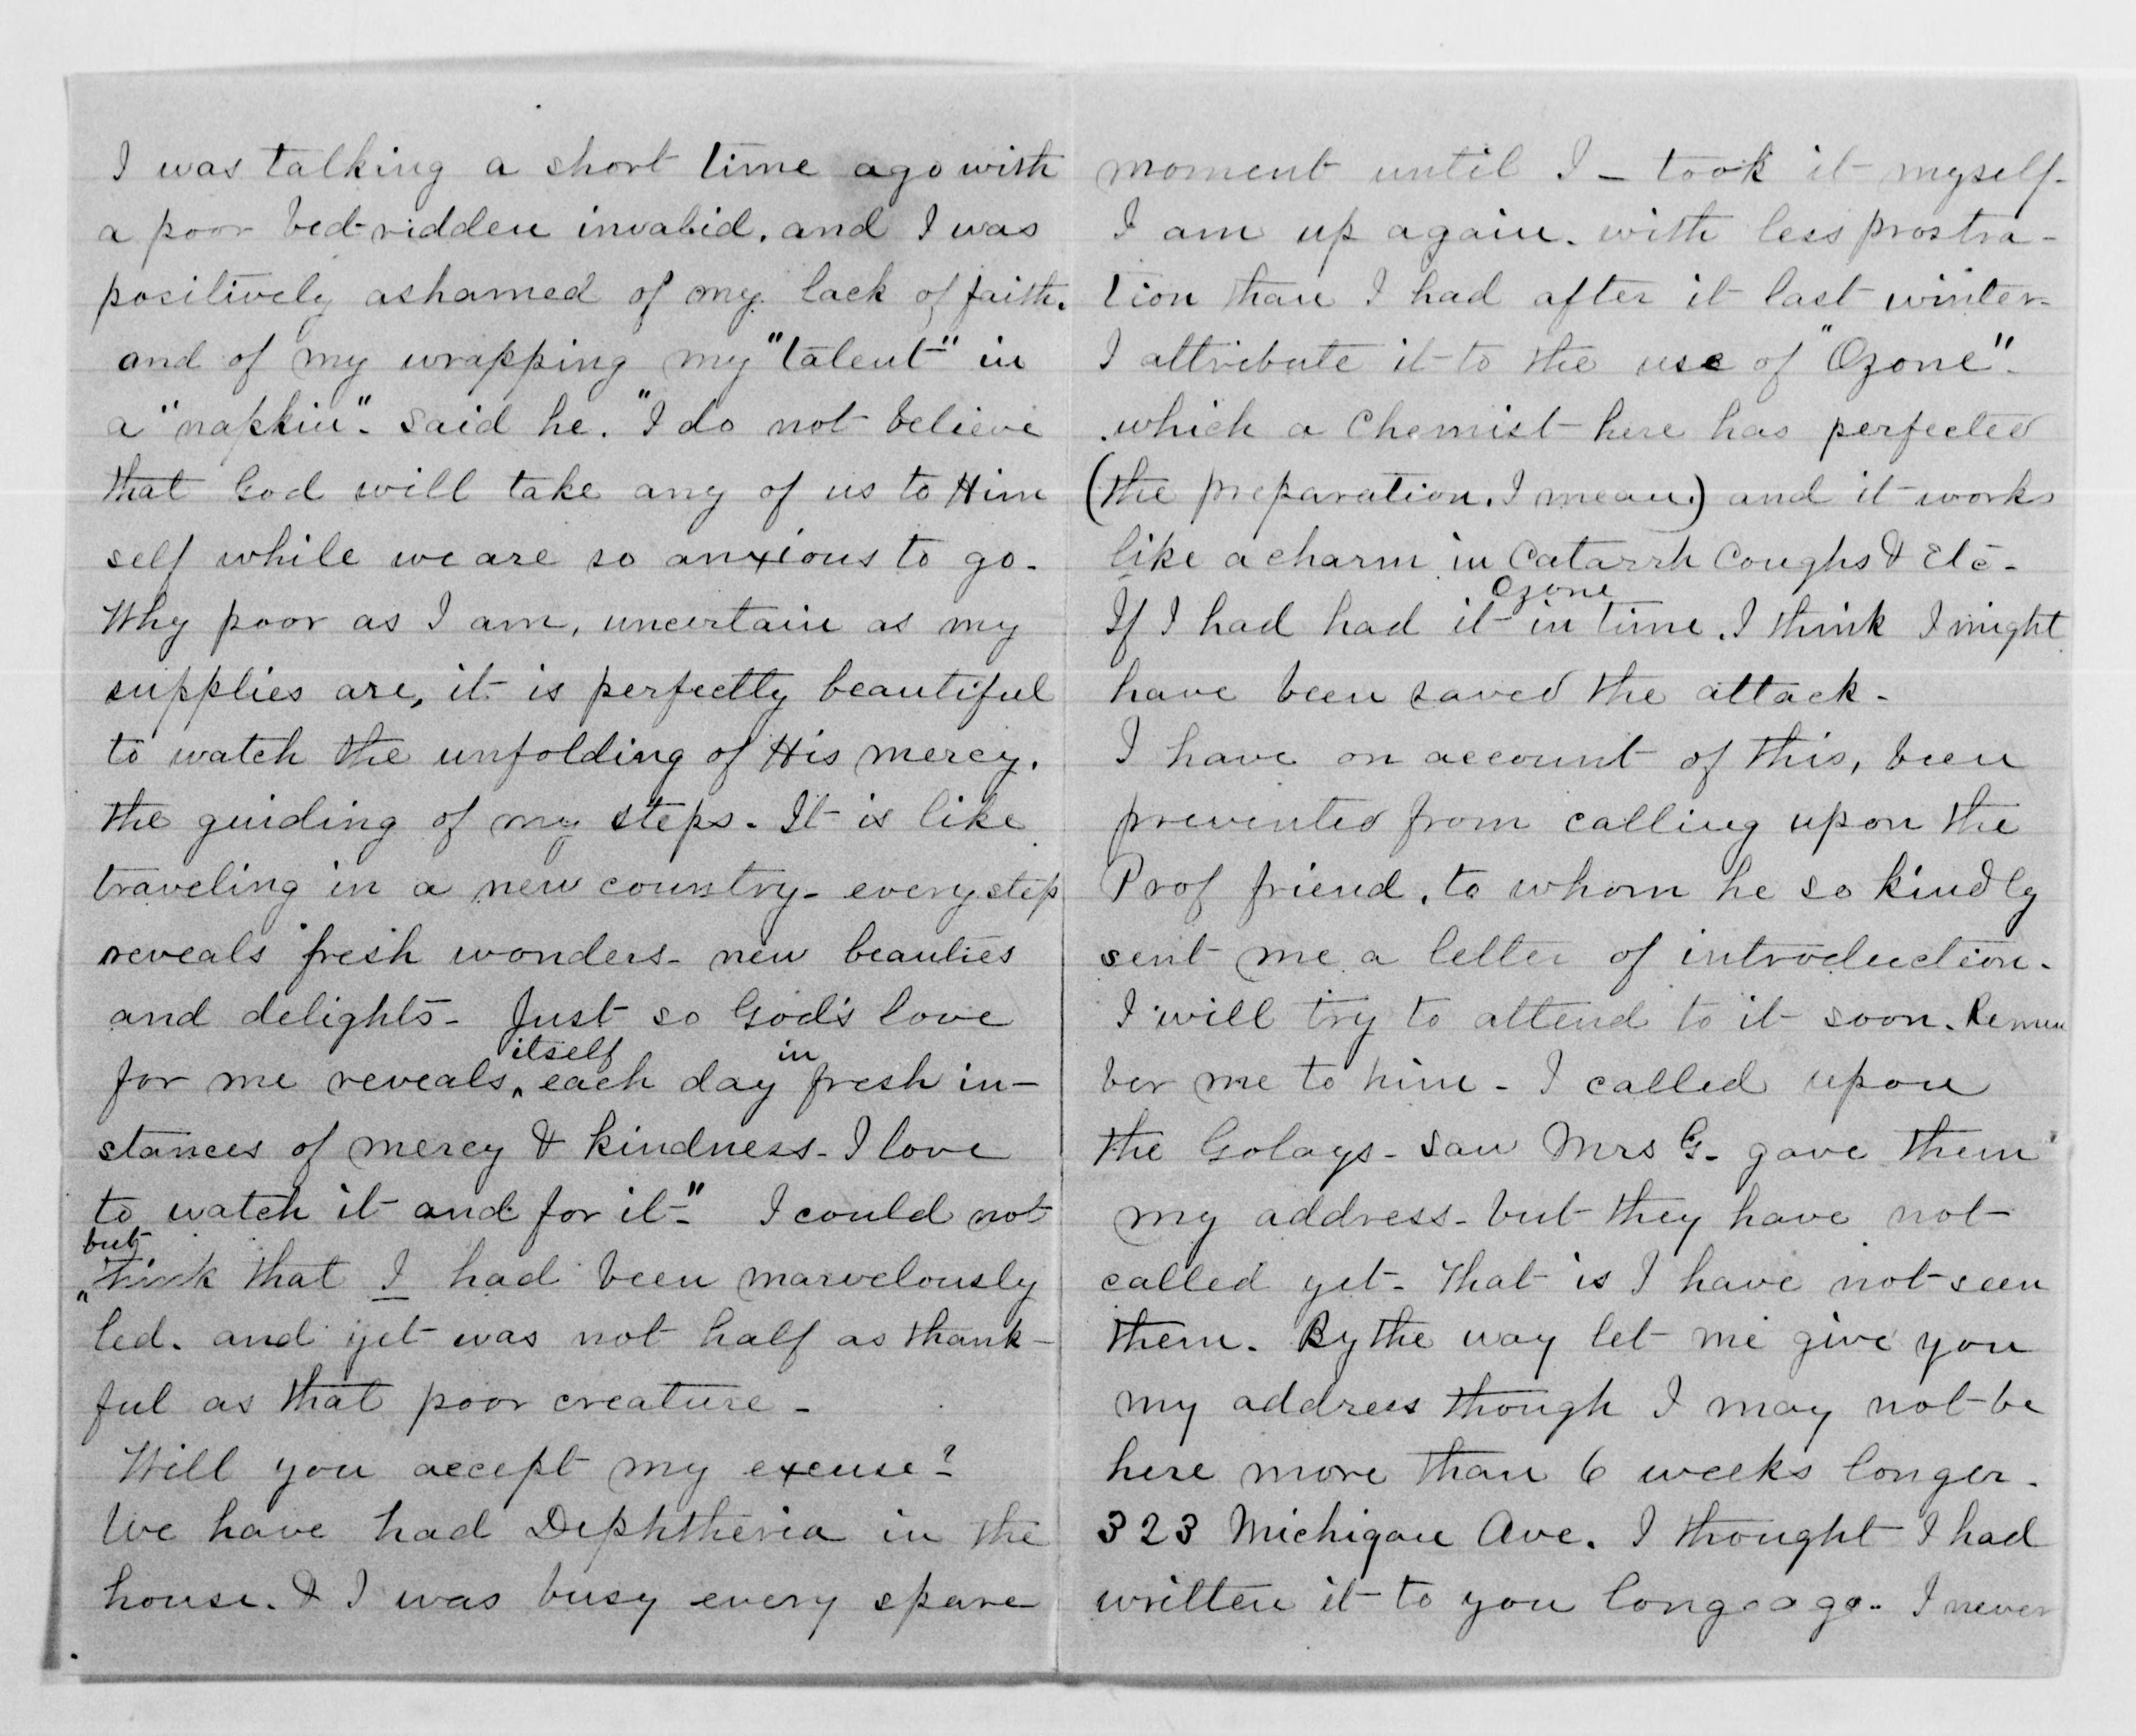 I was talking a short time ago with
a poor bed-ridden invalid. and I was
positively ashamed of my lack of faith.
and of my wrapping my "talent" in
a "napkin". said he. "I do not believe
that God will take any of us to Him
self while we are so anxious to go.
Why poor as I am, uncertain as my
supplies are, it is perfectly beautiful
to watch the unfolding of His mercy.
the guiding of my steps. It is like
traveling in a new country - every step
reveals fresh wonders - new beauties
and delights - Just so God's love
itself in
for me reveals ‸ each day fresh in-
stances of mercy & kindness - I love
to watch it and for it." I could not
but
‸ think that I had been marvelously
led. and yet was not half as thank-
ful as that poor creature -
Will you accept my excuse?
We have had Diphtheria in the
house. & I was busy every spare
moment until I - took it myself -
I am up again. with less prostra-
tion than I had after it last winter -
I attribute it to the use of "Ozone".
which a Chemist here has perfected
(the preparation. I mean.) and it works
like a charm in Catarrh Coughs & Etc -
Ozone
If I had had it in time. I think I might
have been saved the attack -
I have on account of this, been
prevented from calling upon the
Prof friend, to whom he so kindly
sent me a letter of introduction.
I will try to attend to it soon. Remem
ber me to him - I called upon
the Golays - saw Mrs G. gave them
my address - but they have not
called yet - that is I have not seen
them. By the way let me give you
my address though I may not be
here more than 6 weeks longer.
323 Michigan Ave. I thought I had
written it to you long ago. I never